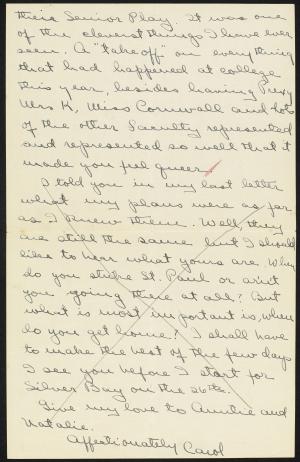 their Senior Play. It was one
of the cleverest things I have ever
seen. A "take off" on everything
that had happened at college
this year, besides having Prexy
Mrs K, Miss Cornwall and lots
of the other Faculty represented
and represented so well that it
made you feel queer.
I told you in my last letter
what my plans were as far
as I knew them. Well, they
are still the same but I should
like to hear what yours are. When
do you strike St. Paul or ain't
you going there at all? But
what is most important is, when
do you get home? I shall have
to make the best of the few days
I see you before I start for
Silver Bay on the 26th.
Give my love to Auntie and
Natalie.
Affectionately Carol